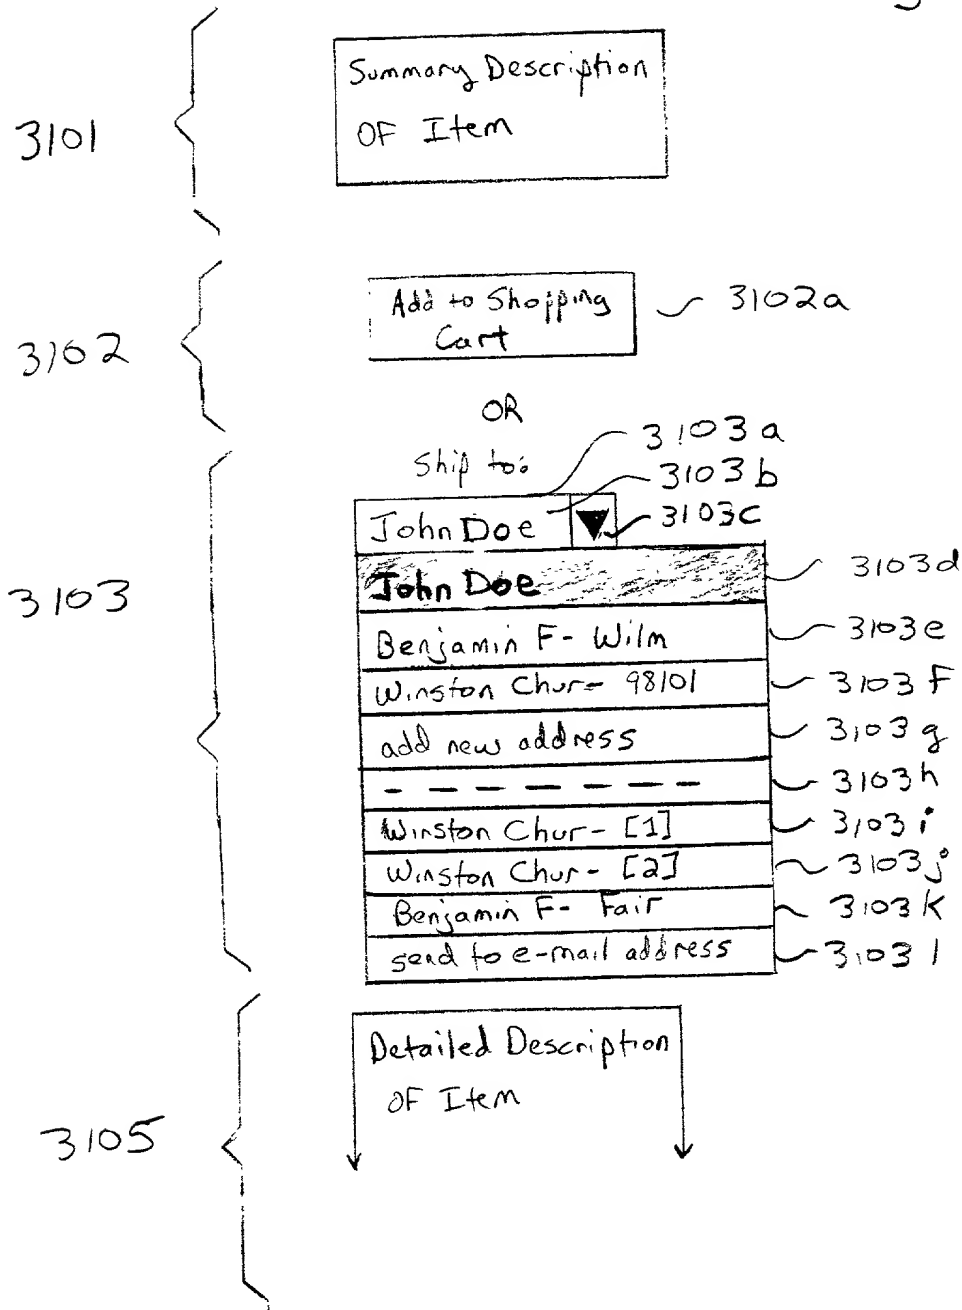 Summary Description
OF Item
3101
Add to Shopping
Cart
3102a
3102
OR
Ship to:
3103a
3103b
John Doe
3103c
John Doe
3103d
3103
Benjamin F- Wilm
3103e
Winston Chur- 98101
3103F
add new address
3103g
- - - - - - - -
3103h
Winston Chur- [1]
3103i
Winston Chur- [2]
3103j
Benjamin F- Fair
3103K
send to e-mail address
3103l
Detailed Description
OF Item
3105